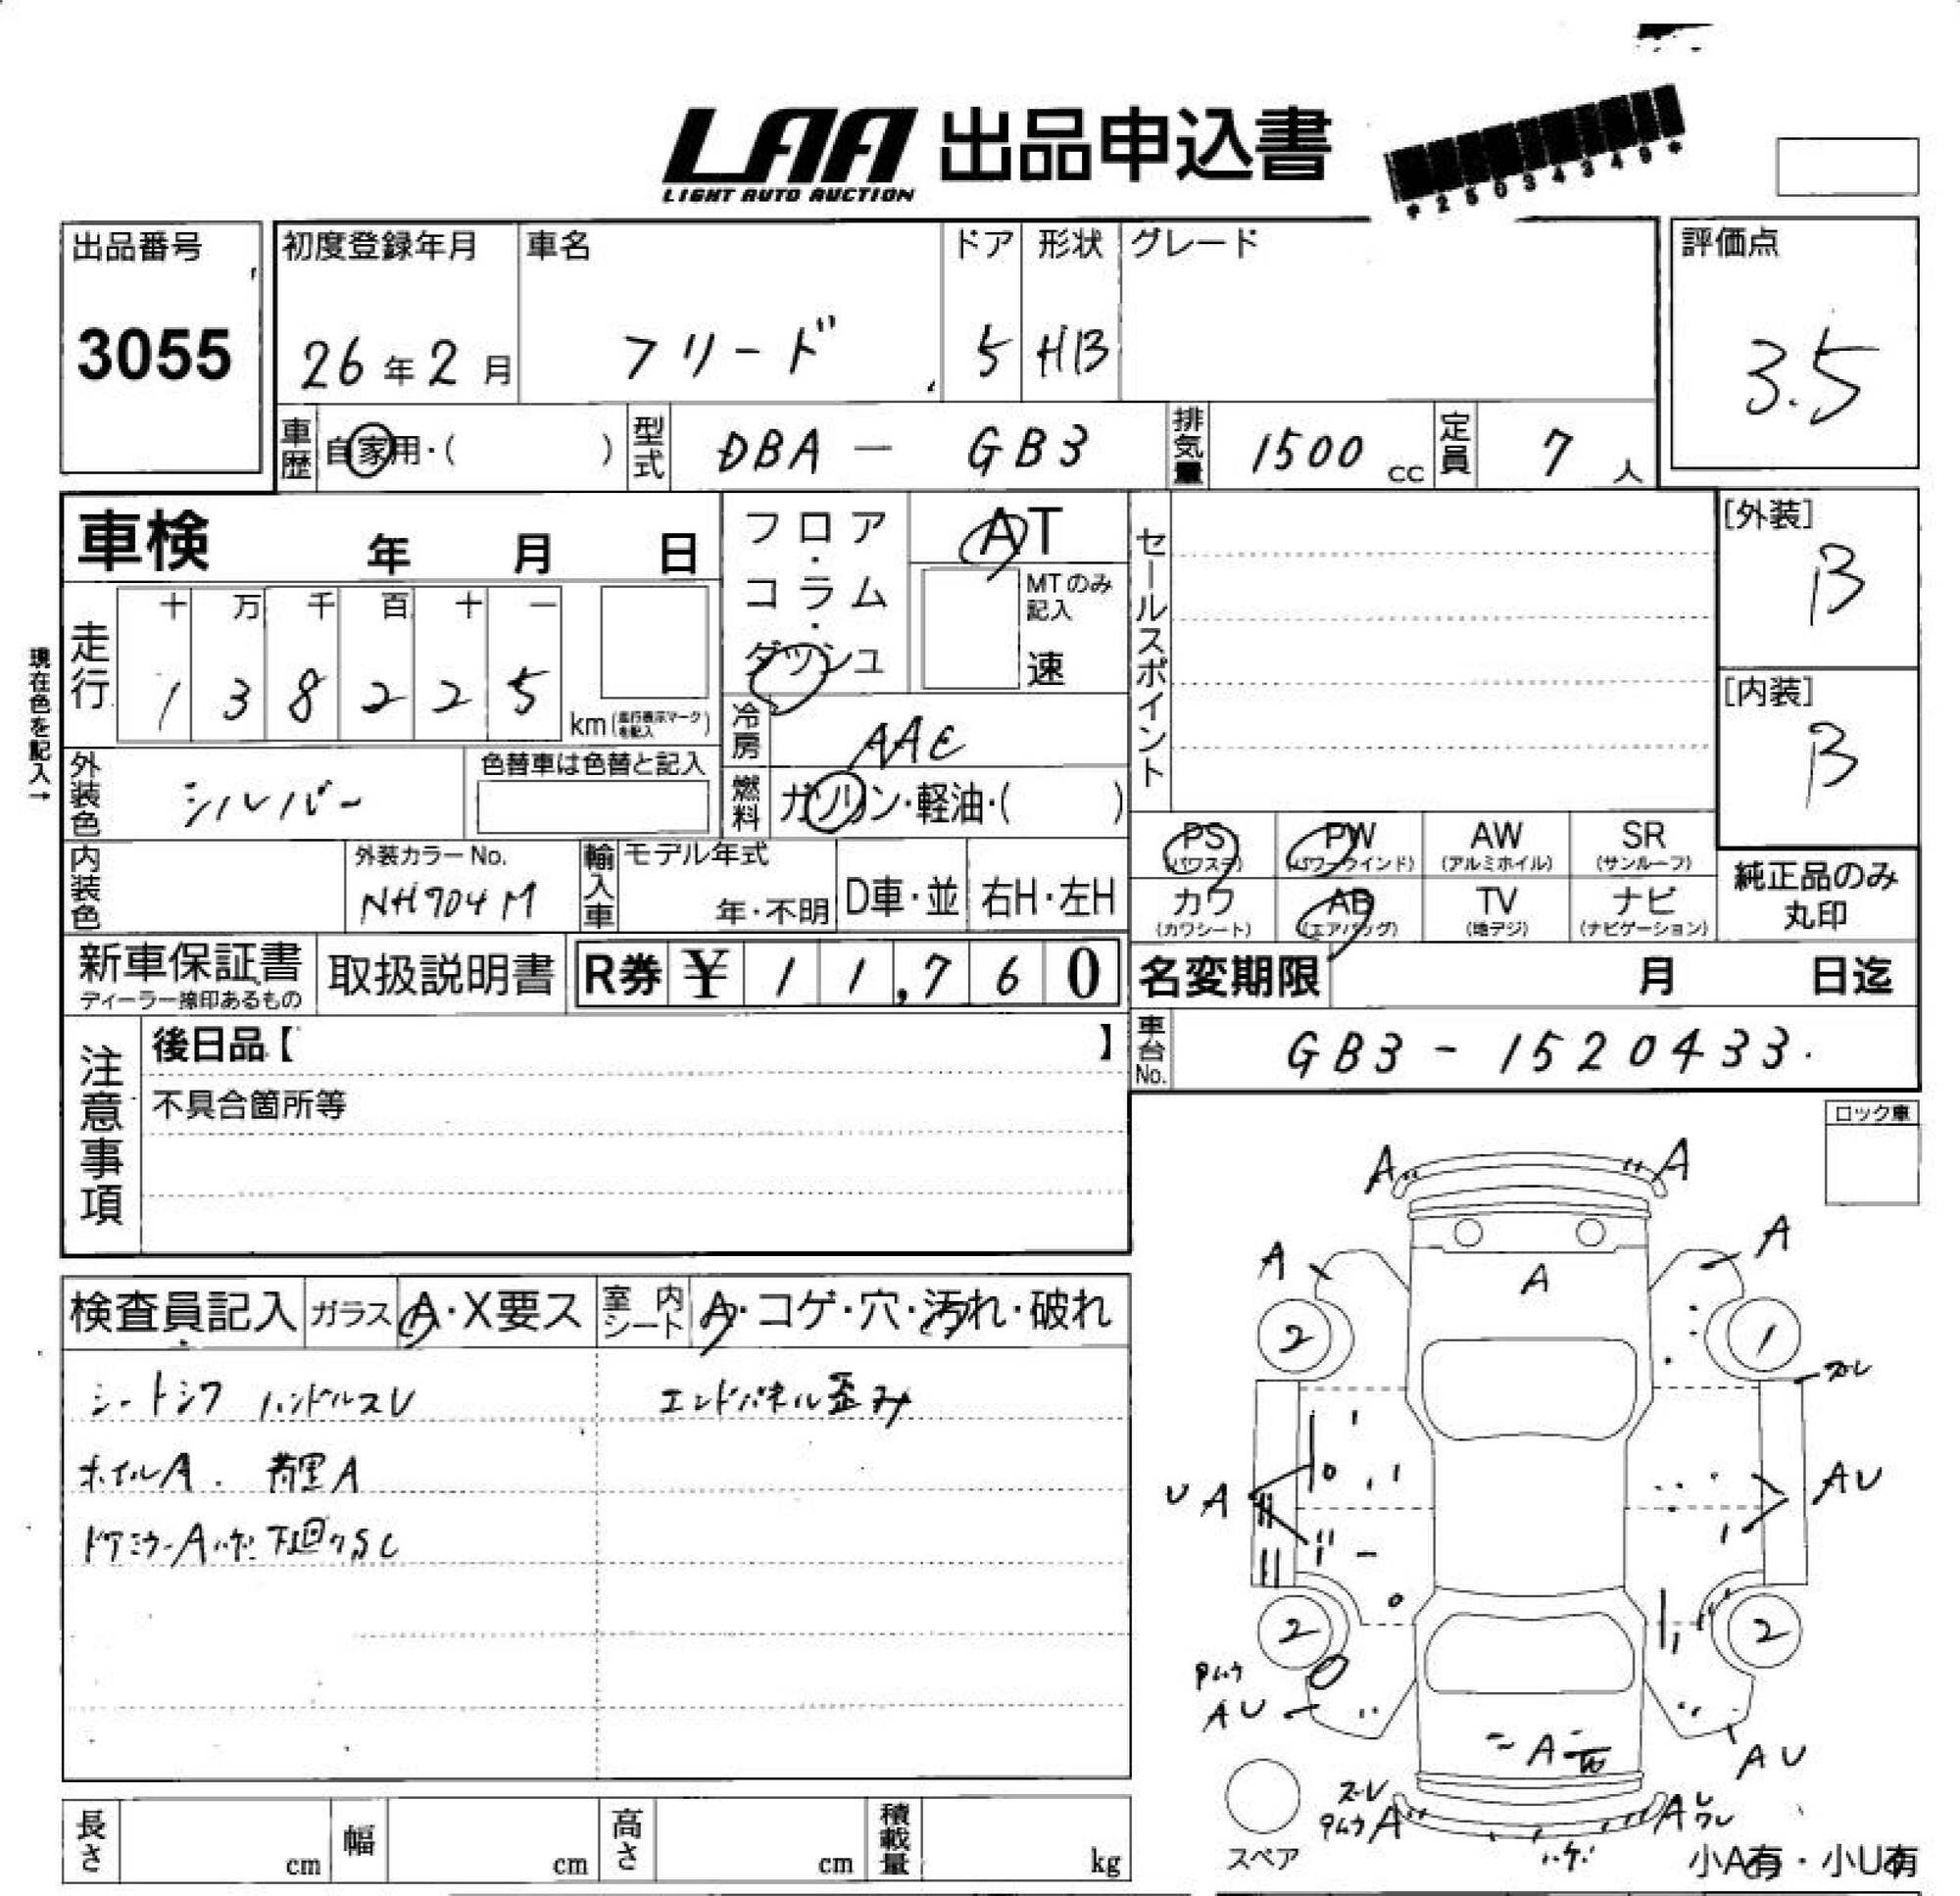 LAA 出品申込書
LIGHT AUTO AUCTION
*25034349*
出品番号
3055
初度登録年月
26年2月
車名
フリード
ドア
5
形状
HB
グレード
評価点
3.5
車歴 自家用・( )
型式 DBA - GB3
排気量 1500 cc
定員 7 人
車検 年 月 日
フロア・コラム・ダッシュ
AT
MTのみ記入
速
セールスポイント
[外装]
B
[内装]
B
現在色を記入→
走行
十 万 千 百 十 一
1 3 8 2 2 5
km(走行表示マークを記入)
冷房 AAC
外装色 シルバー
色替車は色替と記入
燃料 ガソリン・軽油・( )
内装色
外装カラーNo.
NH704M
輸入車
モデル年式
年・不明
D車・並
右H・左H
PS (パワステ)
PW (パワーウインド)
AW (アルミホイル)
SR (サンルーフ)
カワ (カワシート)
AB (エアバッグ)
TV (地デジ)
ナビ (ナビゲーション)
純正品のみ
丸印
新車保証書
ディーラー捺印あるもの
取扱説明書
R券 ¥ 1 1,7 6 0
名変期限 月 日迄
車台No. GB3-1520433.
注意事項
後日品【 】
不具合箇所等
ロック車
検査員記入
ガラス A・X要ス
室内シート A・コゲ・穴・汚れ・破れ
シートシワ ハンドルスレ
エンドパネル歪み
ホイルA.
ドアミラーAハゲ 下廻りSC
A A
A A
A
2 1
ズレ
UA
AU
2 2
AU
A
AU
ズレ
A
A
ハゲ
スペア
小A有・小U有
長さ cm
幅 cm
高さ cm
積載量 kg